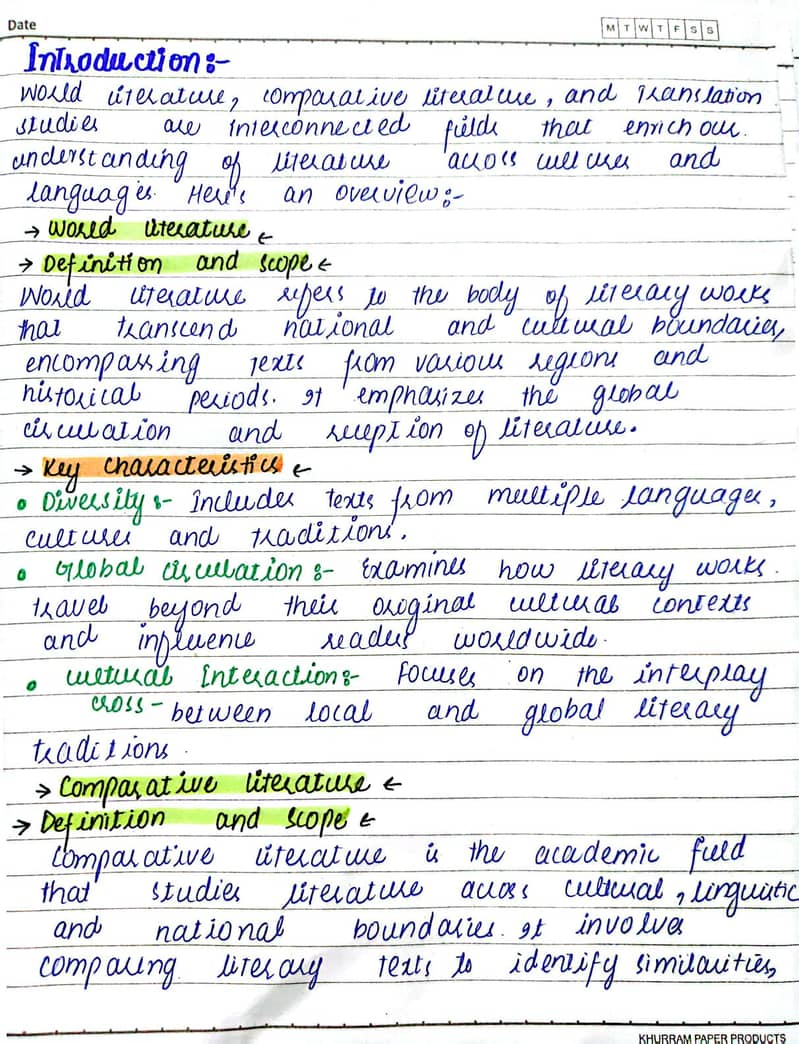 Date
M T W T F S S
Introduction:-
World literature, comparative literature, and Translation
studies are interconnected fields that enrich our
understanding of literature across cultures and
languages. Here's an overview:-
→ World literature ←
→ Definition and scope ←
World literature refers to the body of literary works
that transcend national and cultural boundaries,
encompassing texts from various regions and
historical periods. It emphasizes the global
circulation and reception of literature.
→ Key Characteristics ←
• Diversity:- Includes texts from multiple languages,
cultures and traditions.
• Global circulation:- Examines how literary works
travel beyond their original cultural contexts
and influence readers worldwide.
• cultural Interaction:- Focuses on the interplay
cross- between local and global literary
traditions.
→ Comparative literature ←
→ Definition and scope ←
Comparative literature is the academic field
that studies literature across cultural, linguistic
and national boundaries. It involves
comparing literary texts to identify similarities,
KHURRAM PAPER PRODUCTS